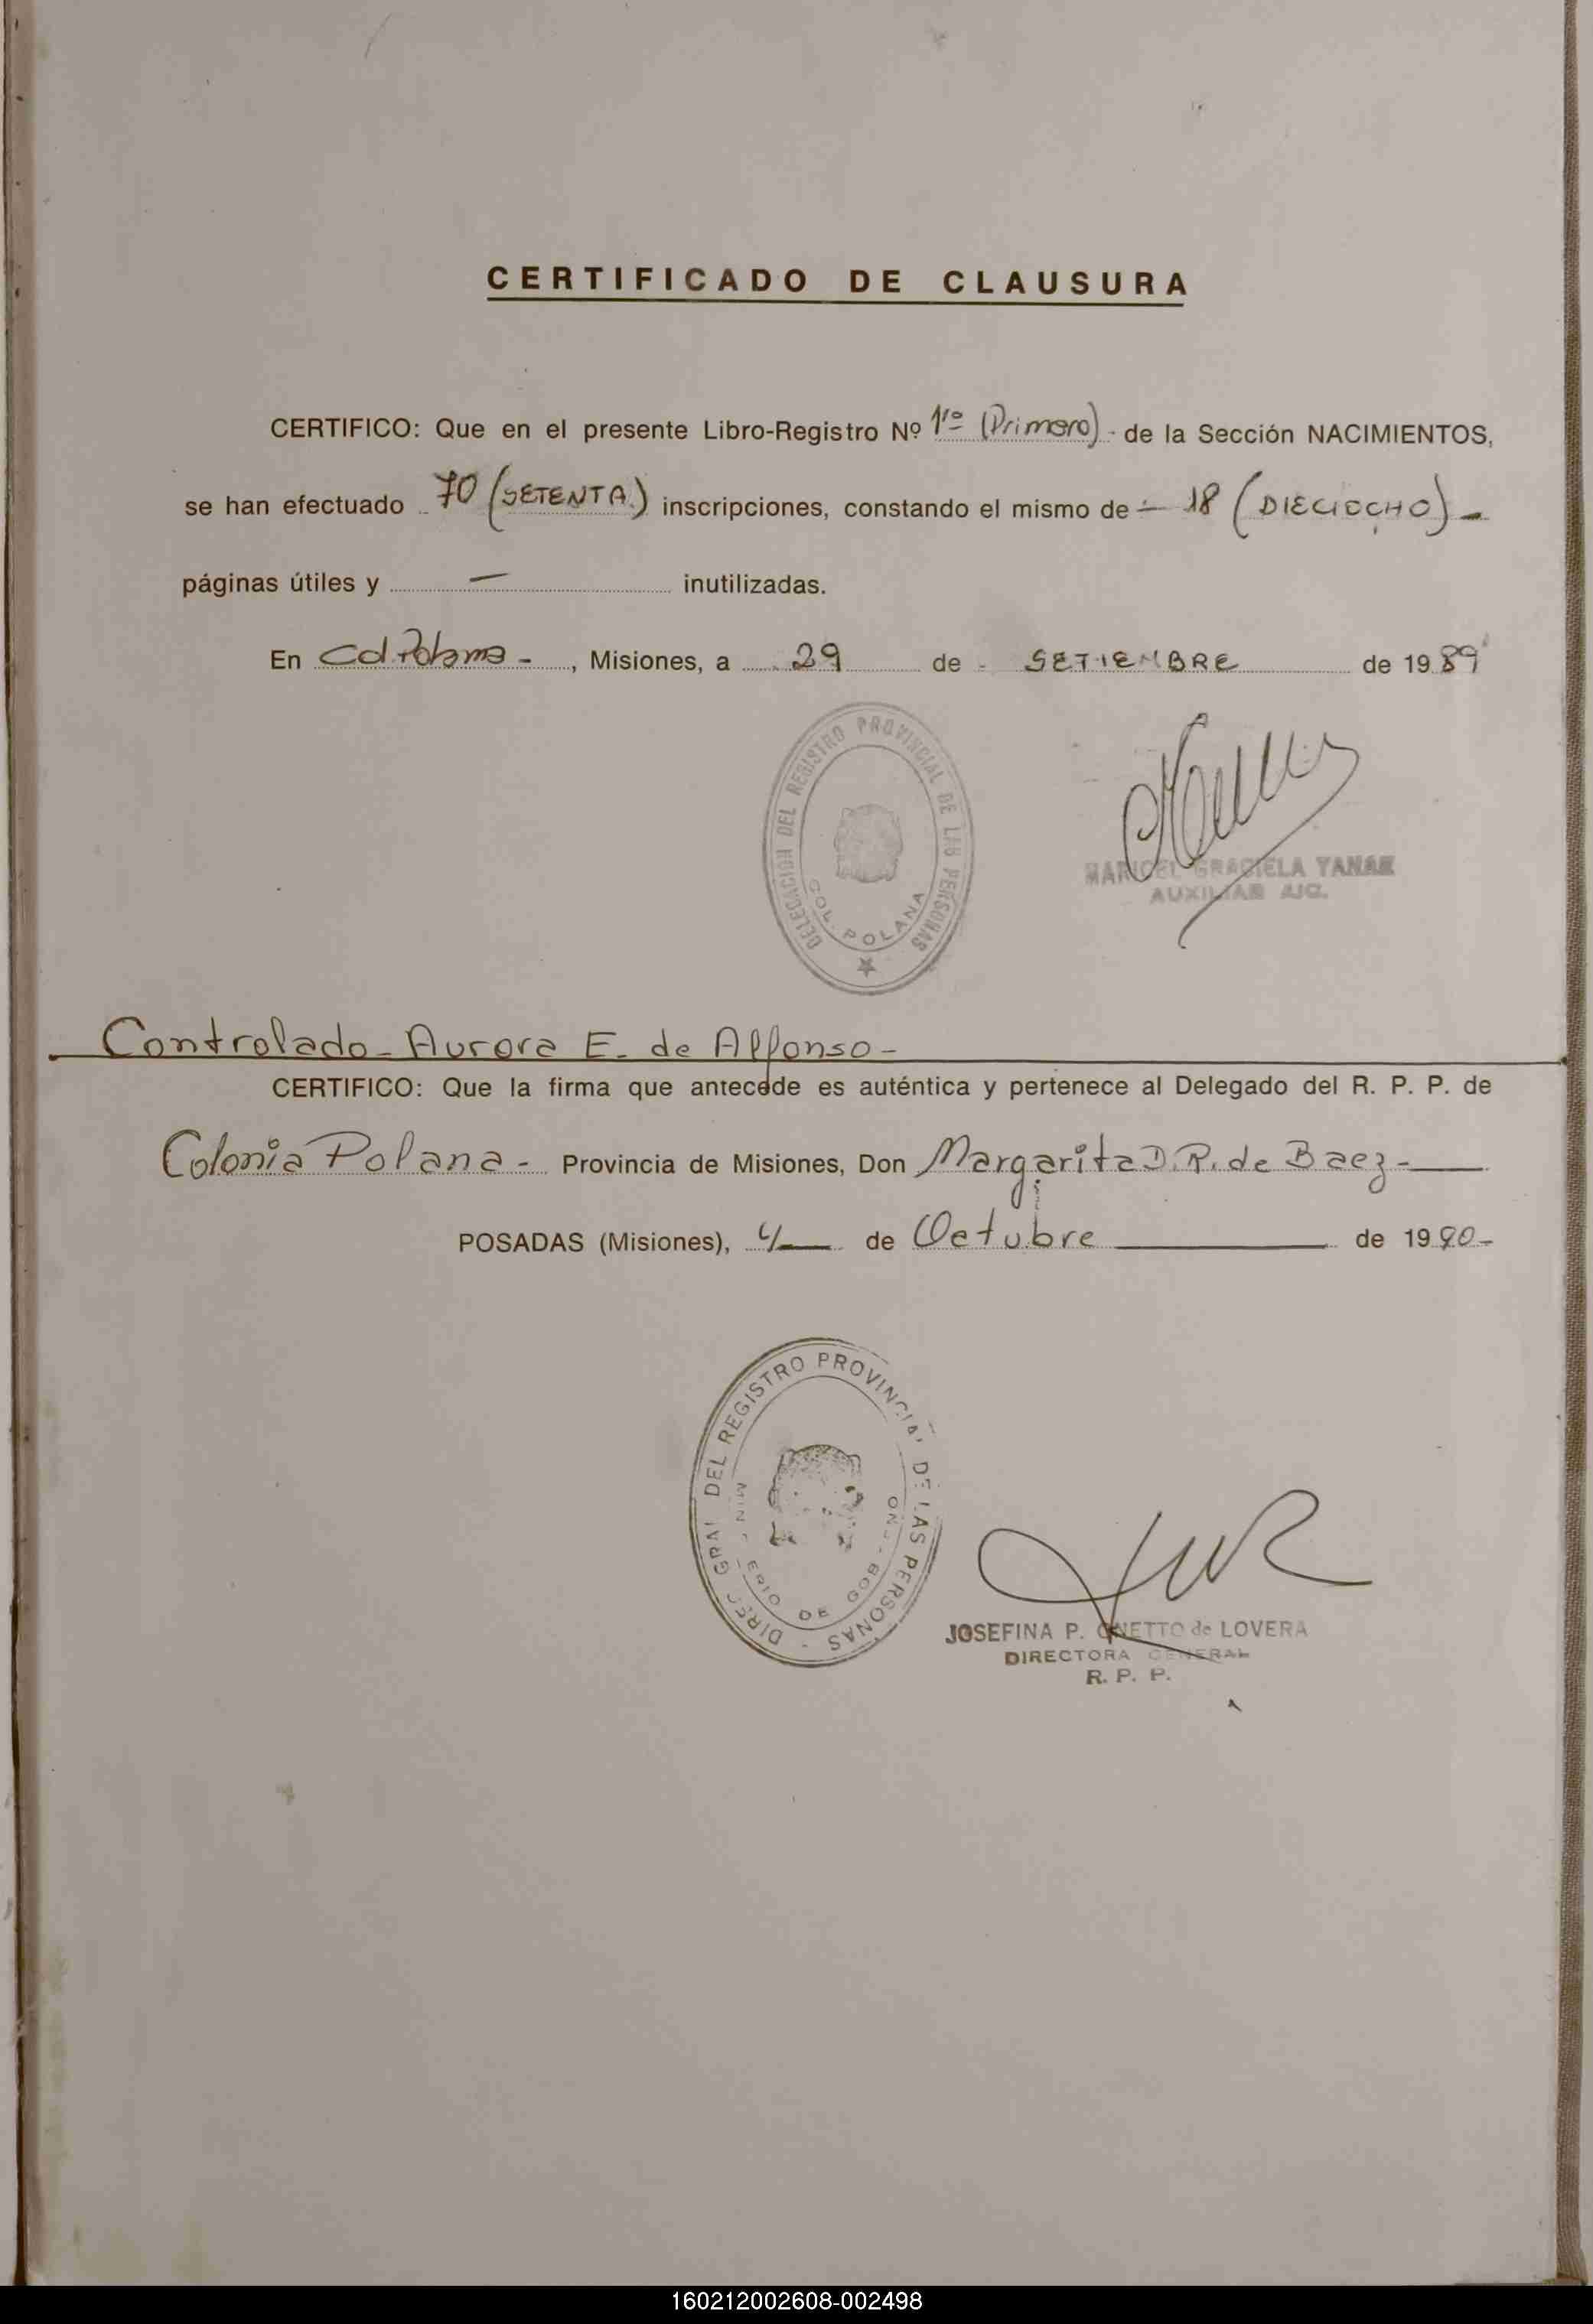 CERTIFICADO DE CLAUSURA
CERTIFICO: Que en el presente Libro-Registro Nº 1ro (Primero) - de la Sección NACIMIENTOS,
se han efectuado 70 (SETENTA) inscripciones, constando el mismo de - 18 (DIECIOCHO) -
páginas útiles y — inutilizadas.
En Col. Polana -, Misiones, a 29 de - SETIEMBRE de 1989
DELEGACION DEL REGISTRO PROVINCIAL DE LAS PERSONAS
COL. POLANA
MARICEL GRACIELA
AUXILIAR
Controlado - Aurora E. de Alfonso -
CERTIFICO: Que la firma que antecede es auténtica y pertenece al Delegado del R. P. P. de
Colonia Polana - Provincia de Misiones, Don Margarita D. R. de Baez -
POSADAS (Misiones), 4 de Octubre de 1990 -
DIREC GRAL DEL REGISTRO PROVINCIAL DE LAS PERSONAS -
MINISTERIO DE GOBIERNO
JOSEFINA P. ONETTO de LOVERA
DIRECTORA GENERAL
R. P. P.
160212002608-002498